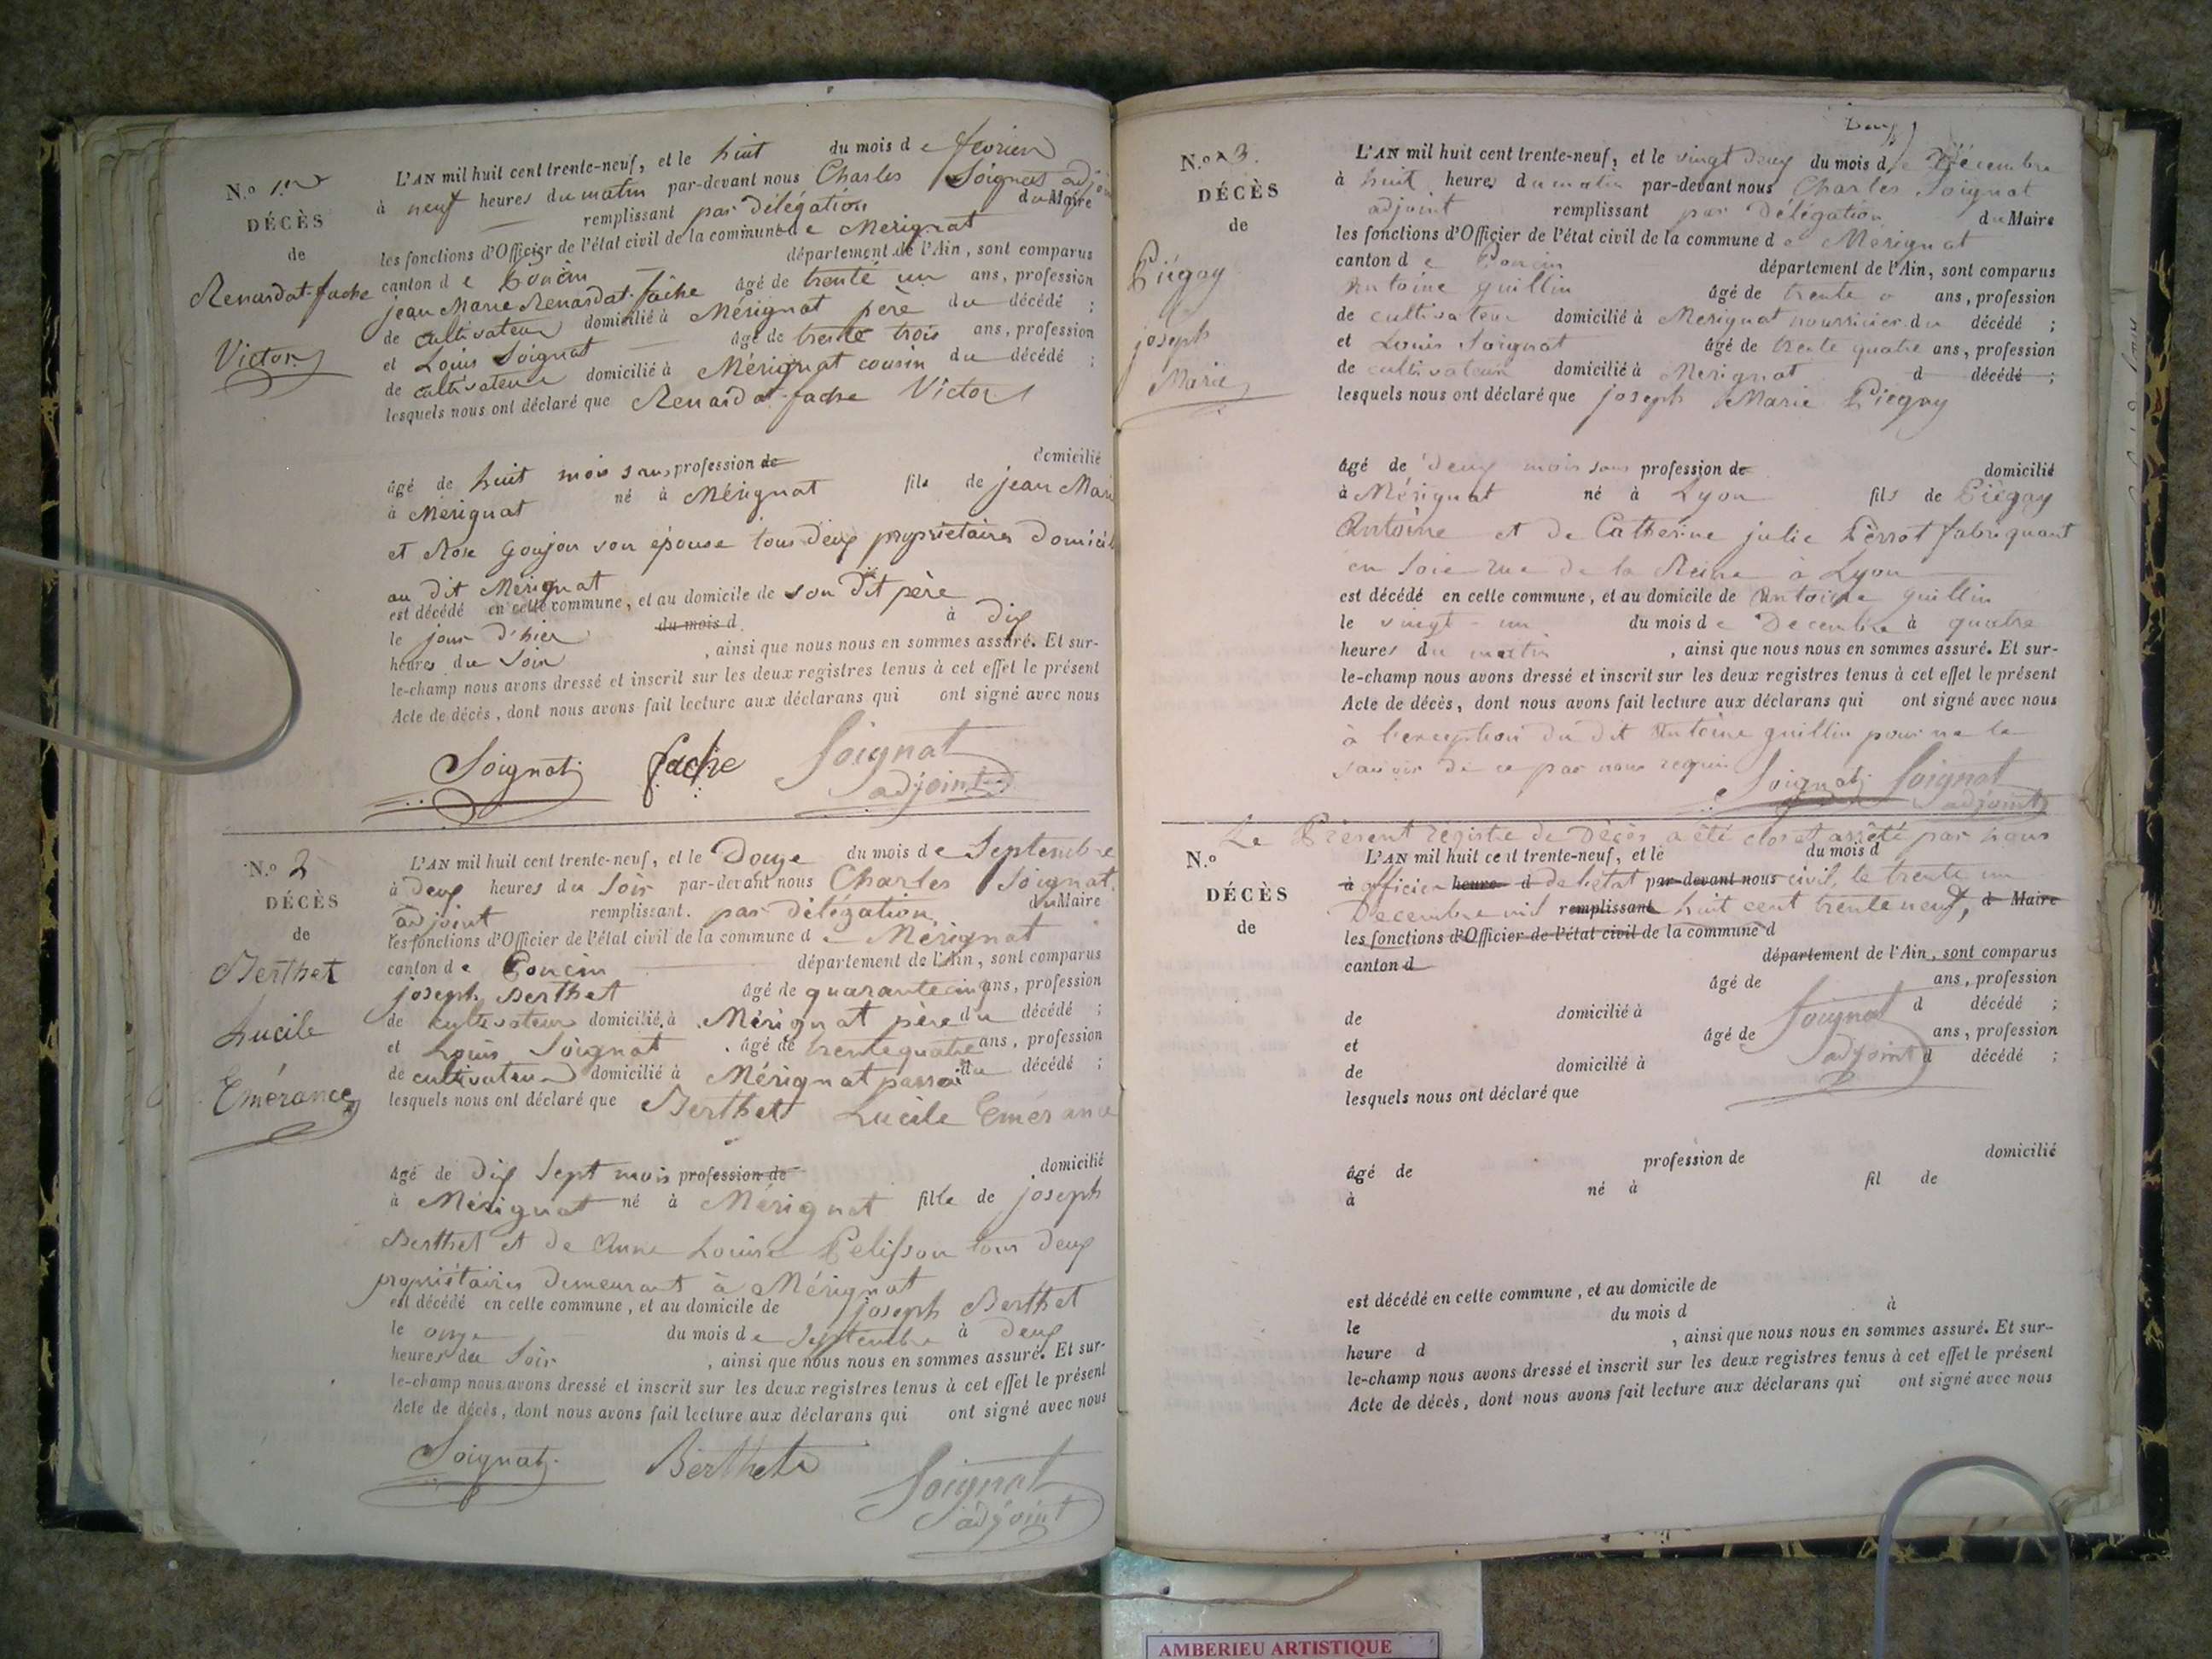 N.o 1.er
DÉCÈS
de
Renardat-fache
Victor
L'AN mil huit cent trente-neuf, et le huit du mois de fevrier
à neuf heures du matin par-devant nous Charles Soignat adjoint
remplissant par délégation du Maire
les fonctions d'Officier de l'état civil de la commune de Merignat
canton de Poncin département de l'Ain, sont comparus
jean Marie Renardat-fache âgé de trente un ans, profession
de cultivateur domicilié à Mérignat père du décédé ;
et Louis Soignat âgé de trente trois ans, profession
de cultivateur domicilié à Mérignat cousin du décédé ;
lesquels nous ont déclaré que Renardat-fache Victor
âgé de huit mois sans profession de domicilié
à Mérignat né à Mérignat fils de jean Marie
et Rose Goujon son épouse tous deux propriétaires domicil
au dit Mérignat
est décédé en cette commune, et au domicile de son dit père
le jour d'hier du mois d à dix
heures du Soir , ainsi que nous nous en sommes assuré. Et sur-
le-champ nous avons dressé et inscrit sur les deux registres tenus à cet effet le présent
Acte de décès, dont nous avons fait lecture aux déclarans qui ont signé avec nous
Soignat fache Soignat
adjoint
N.o 2
DÉCÈS
de
Berthet
Lucile
Emérance
L'AN mil huit cent trente-neuf, et le Douze du mois de Septembre
à deux heures du Soir par-devant nous Charles Soignat
adjoint remplissant par délégation du Maire
les fonctions d'Officier de l'état civil de la commune de Mérignat
canton de Poncin département de l'Ain, sont comparus
joseph Berthet âgé de quarante cinq ans, profession
de cultivateur domicilié à Mérignat père du décédé ;
et Louis Soignat âgé de trente quatre ans, profession
de cultivateur domicilié à Mérignat du décédé ;
lesquels nous ont déclaré que Berthet Lucile Emérance
âgé de dix Sept mois profession de domicilié
à Mérignat né à Mérignat fille de joseph
Berthet et de Anne Louise Pelisson tous deux
propriétaires demeurant à Mérignat
est décédé en cette commune, et au domicile de joseph Berthet
le onze du mois de Septembre à deux
heures du Soir , ainsi que nous nous en sommes assuré. Et sur-
le-champ nous avons dressé et inscrit sur les deux registres tenus à cet effet le présent
Acte de décès, dont nous avons fait lecture aux déclarans qui ont signé avec nous
Soignat Berthet Soignat
adjoint
N.o 3.
DÉCÈS
de
Piégay
joseph
Marie
L'AN mil huit cent trente-neuf, et le vingt deux du mois de Décembre
à huit heures du matin par-devant nous Charles Soignat
adjoint remplissant par délégation du Maire
les fonctions d'Officier de l'état civil de la commune de Mérignat
canton de Poncin département de l'Ain, sont comparus
Antoine guillin âgé de trente ans, profession
de cultivateur domicilié à Merignat nourricier du décédé ;
et Louis Soignat âgé de trente quatre ans, profession
de cultivateur domicilié à Merignat d décédé ;
lesquels nous ont déclaré que joseph Marie Piégay
âgé de deux mois sans profession de domicilié
à Mérignat né à Lyon fils de Piégay
Antoine et de Catherine julie Perrot fabriquant
en Soie rue de la Reine à Lyon
est décédé en cette commune, et au domicile de Antoine guillin
le vingt-un du mois de Decembre à quatre
heures du matin , ainsi que nous nous en sommes assuré. Et sur-
le-champ nous avons dressé et inscrit sur les deux registres tenus à cet effet le présent
Acte de décès, dont nous avons fait lecture aux déclarans qui ont signé avec nous
à l'exception du dit Antoine guillin pour ne le
savoir de ce par nous requis
Soignat Soignat
adjoint
Le Présent régistre de Décès a été clos et arrêté par nous
N.o
DÉCÈS
de
L'AN mil huit cent trente-neuf, et le du mois d
à officier heure d de l'état par-devant nous civil, le trente un
Decembre mil remplissant huit cent trente neuf, d Maire
les fonctions d'Officier de l'état civil de la commune d
canton d département de l'Ain, sont comparus
âgé de ans, profession
de domicilié à d décédé ;
et âgé de ans, profession
de domicilié à d décédé ;
Soignat
adjoint
lesquels nous ont déclaré que
âgé de profession de domicilié
à né à fil de
est décédé en cette commune, et au domicile de
le du mois d à
heure d , ainsi que nous nous en sommes assuré. Et sur-
le-champ nous avons dressé et inscrit sur les deux registres tenus à cet effet le présent
Acte de décès, dont nous avons fait lecture aux déclarans qui ont signé avec nous
AMBERIEU ARTISTIQUE